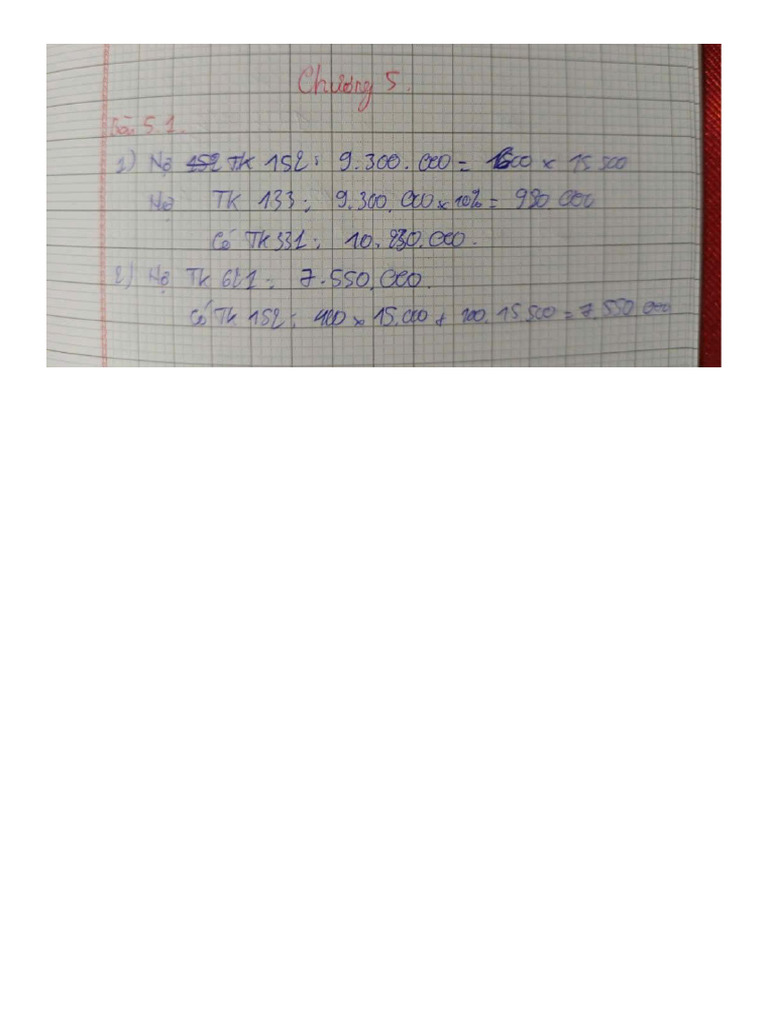 Chương 5.
Bài 5.1.
1) Nợ TK 152: 9.300.000 = 600 x 15 500
Nợ TK 133: 9.300.000 x 10% = 930 000
Có TK 331: 10.230.000.
2) Nợ TK 621: 7.550.000.
Có TK 152: 400 x 15.000 + 100.15 500 = 7.550 000